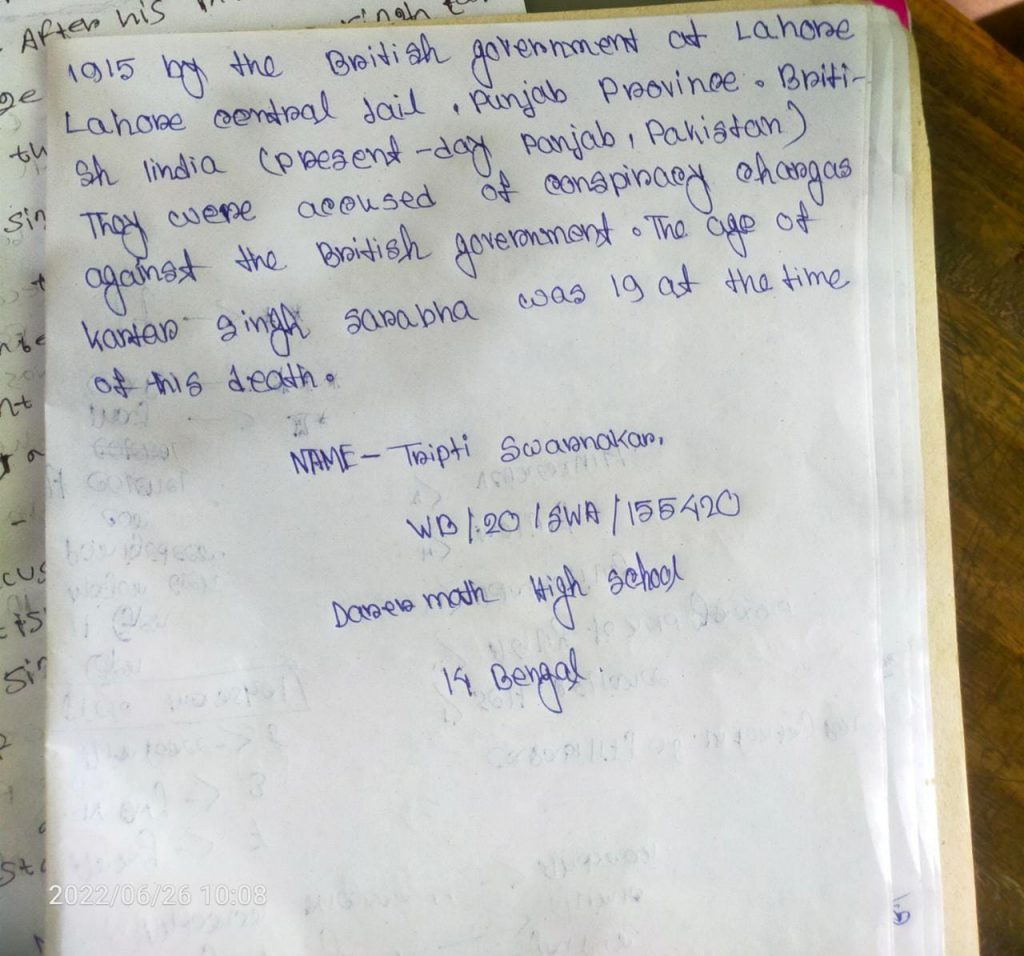 After his
1915 by the British government at Lahore
Lahore central Jail, Punjab Province. Briti-
sh Iindia (present-day Panjab, Pakistan)
They were accused of conspiracy chargas
against the British government. The age of
kartar singh sarabha was 19 at the time
of his death.
NAME - Tripti Swarnakar,
WB/20/SWA/155420
Darer math High school
14 Bengal.
2022/06/26 10:08